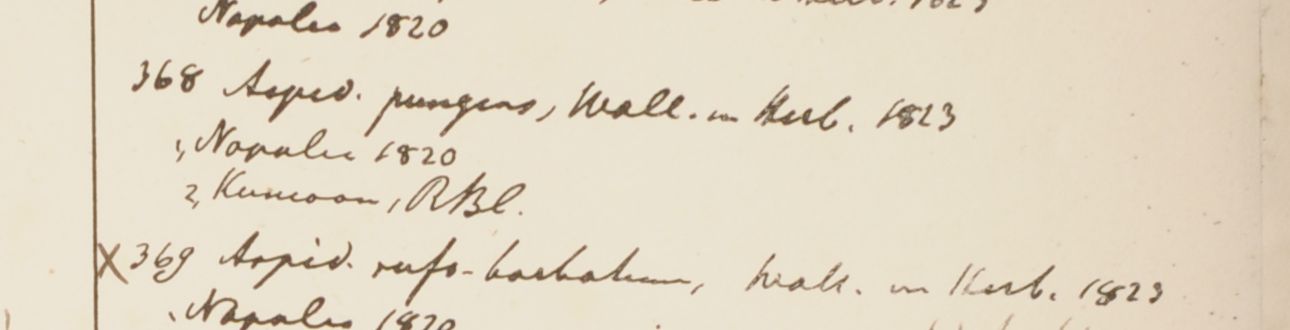 Napalia 1820
368 Aspid. pungens, Wall. in Herb. 1823
1, Napalia 1820
2, Kumoon, RBl.
X 369 Aspid. rufo-barbatum, Wall. in Herb. 1823
1, Napalia 1820